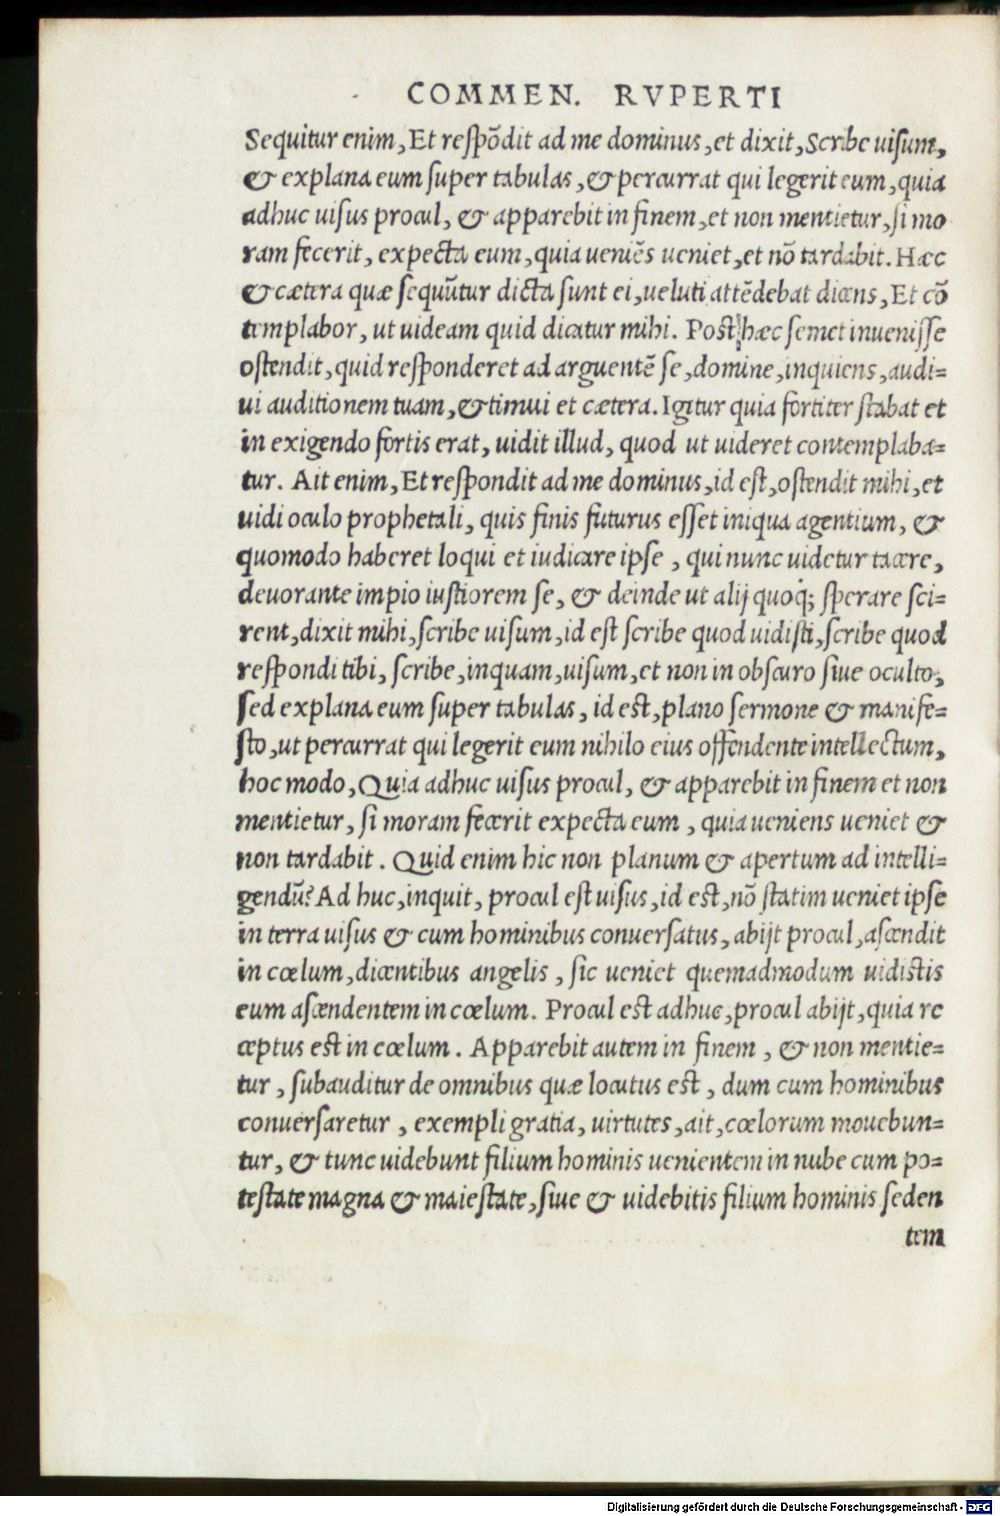 COMMEN. RVPERTI
Sequitur enim, Et respõdit ad me dominus, et dixit, Scribe uisum,
& explana eum super tabulas, & percurrat qui legerit eum, quia
adhuc uisus procul, & apparebit in finem, et non mentietur, si mo
ram fecerit, expecta eum, quia ueniẽs ueniet, et nõ tardabit. Hæc
& cætera quæ sequũtur dicta sunt ei, ueluti attẽdebat dicens, Et cõ
templabor, ut uideam quid dicatur mihi. Post hæc semet inuenisse
ostendit, quid responderet ad arguentẽ se, domine, inquiens, audi=
ui auditionem tuam, & timui et cætera. Igitur quia fortiter stabat et
in exigendo fortis erat, uidit illud, quod ut uideret contemplaba=
tur. Ait enim, Et respondit ad me dominus, id est, ostendit mihi, et
uidi oculo prophetali, quis finis futurus esset iniqua agentium, &
quomodo haberet loqui et iudicare ipse, qui nunc uidetur tacere,
deuorante impio iustiorem se, & deinde ut alij quoq; sperare sci=
rent, dixit mihi, scribe uisum, id est scribe quod uidisti, scribe quod
respondi tibi, scribe, inquam, uisum, et non in obscuro siue oculto,
sed explana eum super tabulas, id est, plano sermone & manife=
sto, ut percurrat qui legerit eum nihilo eius offendente intellectum,
hoc modo, Quia adhuc uisus procul, & apparebit in finem et non
mentietur, si moram fecerit expecta eum, quia ueniens ueniet &
non tardabit. Quid enim hic non planum & apertum ad intelli=
gendũ? Ad huc, inquit, procul est uisus, id est, nõ statim ueniet ipse
in terra uisus & cum hominibus conuersatus, abijt procul, ascendit
in cœlum, dicentibus angelis, sic ueniet quemadmodum uidistis
eum ascendentem in cœlum. Procul est adhuc, procul abijt, quia re
ceptus est in cœlum. Apparebit autem in finem, & non mentie=
tur, subauditur de omnibus quæ locutus est, dum cum hominibus
conuersaretur, exempli gratia, uirtutes, ait, cœlorum mouebun=
tur, & tunc uidebunt filium hominis uenientem in nube cum po=
testate magna & maiestate, siue & uidebitis filium hominis seden
tem
Digitalisierung gefördert durch die Deutsche Forschungsgemeinschaft - DFG